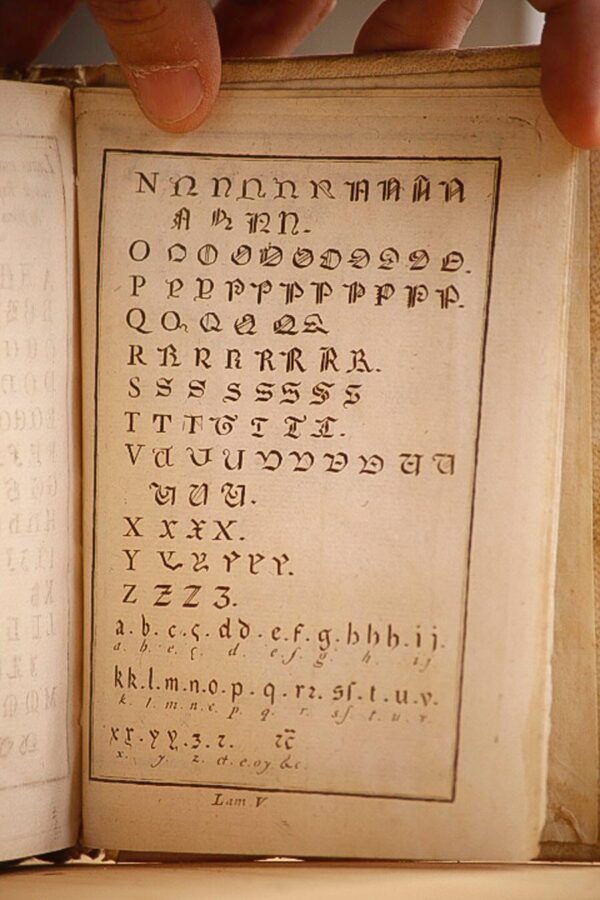 N N N N N N N N N N
N N N N.
O O O O O O O O O O O.
P P P P P P P P P P P.
Q Q Q Q Q Q
R R R R R R R R.
S S S S S S S S
T T T T T T T.
V U U U V V V V U U
U U U.
X X X X.
Y Y Y Y Y Y.
Z Z Z Z.
a. b. c. ç. d d. e. f. g. h h h. i j.
a. b. c. ç. d. e. f. g. h. ij.
k k. l. m. n. o. p. q. r r. s ſ. t. u. v.
k. l. m. n. o. p. q. r. s ſ. t. u. v.
x x. y y. z. 
x. y. z. et. e. o y. &c.
Lam. V